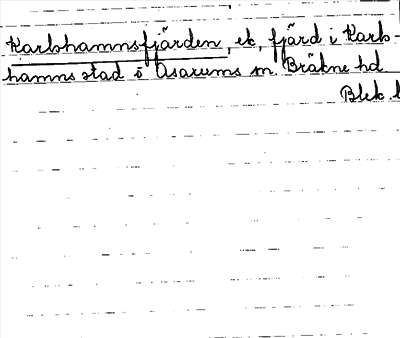 Karlshamnsfjärden, ek, fjärd i Karls-
hamns stad o Asarums sn. Bräkne hd
Blek. l